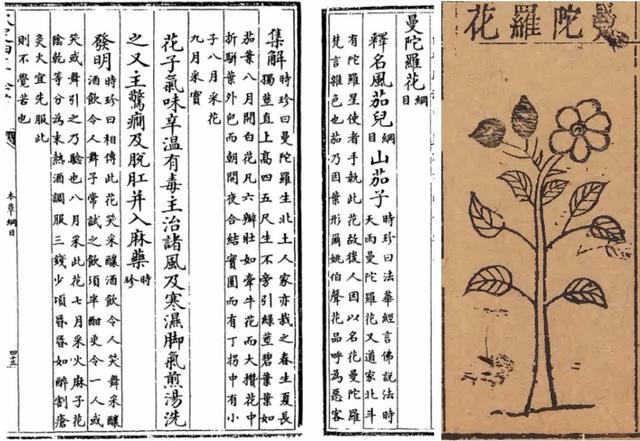 曼陀羅花
曼陀羅花綱目
釋名風茄兒綱目山茄子
時珍曰法華經言佛說法時
天雨曼陀羅花又道家北斗
有陀羅星使者手執此花故後人因以名花曼陀羅
梵言雜色也茄乃因葉形爾姚伯聲花品呼為惡客
集解時珍曰曼陀羅生北土人家亦栽之春生夏長
獨莖直上高四五尺生不旁引綠莖碧葉葉如
茄葉八月開白花凡六瓣狀如牽牛花而大攢花中
折駢葉外包而朝開夜合結實圓而有丁拐中有小
子八月采花
九月采實
花子氣味辛溫有毒主治諸風及寒濕脚氣煎湯洗
之又主驚癇及脫肛并入麻藥時珍
發明時珍曰相傳此花笑采釀酒飲令人笑舞采釀
酒飲令人舞予常試之飲須半酣更令一人或
笑或舞引之乃驗也八月采此花七月采火麻子花
陰乾等分為末熱酒調服三錢少頃昏昏如醉割瘡
灸火宜先服此
則不覺苦也
本草綱目
四三